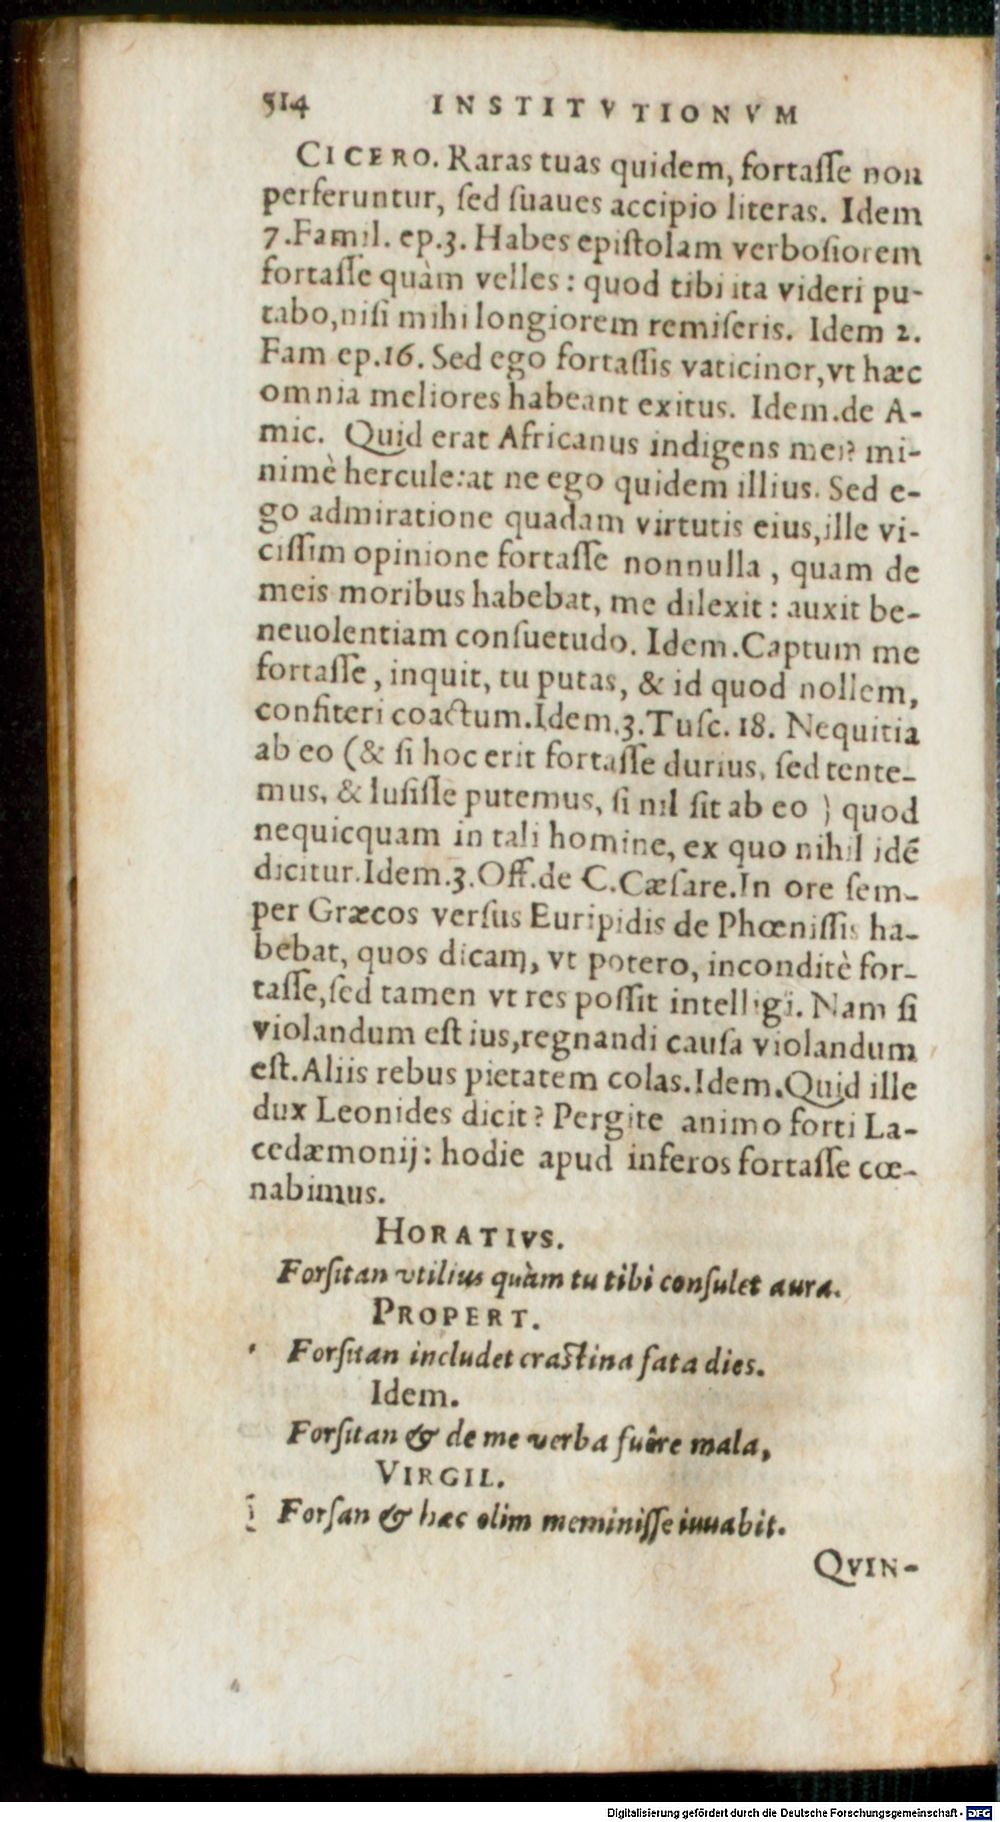 514 INSTITVTIONVM
CICERO. Raras tuas quidem, fortaſſe non
perferuntur, ſed ſuaues accipio literas. Idem
7.Famil. ep.3. Habes epiſtolam verboſiorem
fortaſſe quàm velles: quod tibi ita videri pu-
tabo,niſi mihi longiorem remiſeris. Idem 2.
Fam ep.16. Sed ego fortaſſis vaticinor,vt hæc
omnia meliores habeant exitus. Idem.de A-
mic. Quid erat Africanus indigens mei? mi-
nimè hercule:at ne ego quidem illius. Sed e-
go admiratione quadam virtutis eius,ille vi-
ciſſim opinione fortaſſe nonnulla, quam de
meis moribus habebat, me dilexit: auxit be-
neuolentiam conſuetudo. Idem.Captum me
fortaſſe, inquit, tu putas, & id quod nollem,
confiteri coactum.Idem.3.Tuſc. 18. Nequitia
ab eo (& ſi hoc erit fortaſſe durius, ſed tente-
mus, & luſiſſe putemus, ſi nil ſit ab eo ) quod
nequicquam in tali homine, ex quo nihil idē
dicitur.Idem.3.Off.de C.Cæſare.In ore ſem-
per Græcos verſus Euripidis de Phœniſſis ha-
bebat, quos dicam, vt potero, inconditè for-
taſſe,ſed tamen vt res poſſit intelligi. Nam ſi
violandum eſt ius,regnandi cauſa violandum
eſt.Aliis rebus pietatem colas.Idem.Quid ille
dux Leonides dicit? Pergite animo forti La-
cedæmonij: hodie apud inferos fortaſſe cœ-
nabimus.
HORATIVS.
Forſitan vtilius quàm tu tibi conſulet aura.
PROPERT.
Forſitan includet craſtina fata dies.
Idem.
Forſitan & de me verba fuêre mala,
VIRGIL.
Forſan & hæc olim meminiſſe iuuabit.
QVIN-
Digitalisierung gefördert durch die Deutsche Forschungsgemeinschaft - DFG